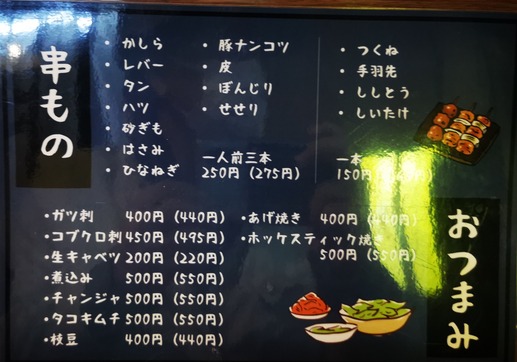 串もの
・かしら
・レバー
・タン
・ハツ
・砂ぎも
・はさみ
・ひなねぎ
・豚ナンコツ
・皮
・ぼんじり
・せせり
一人前三本
250円(275円)
・つくね
・手羽先
・ししとう
・しいたけ
一本
150円
おつまみ
・ガツ刺 400円(440円)
・コブクロ刺 450円(495円)
・生キャベツ 200円(220円)
・煮込み 500円(550円)
・チャンジャ 500円(550円)
・タコキムチ 500円(550円)
・枝豆 400円(440円)
・あげ焼き 400円(440円)
・ホッケスティック焼き
500円(550円)